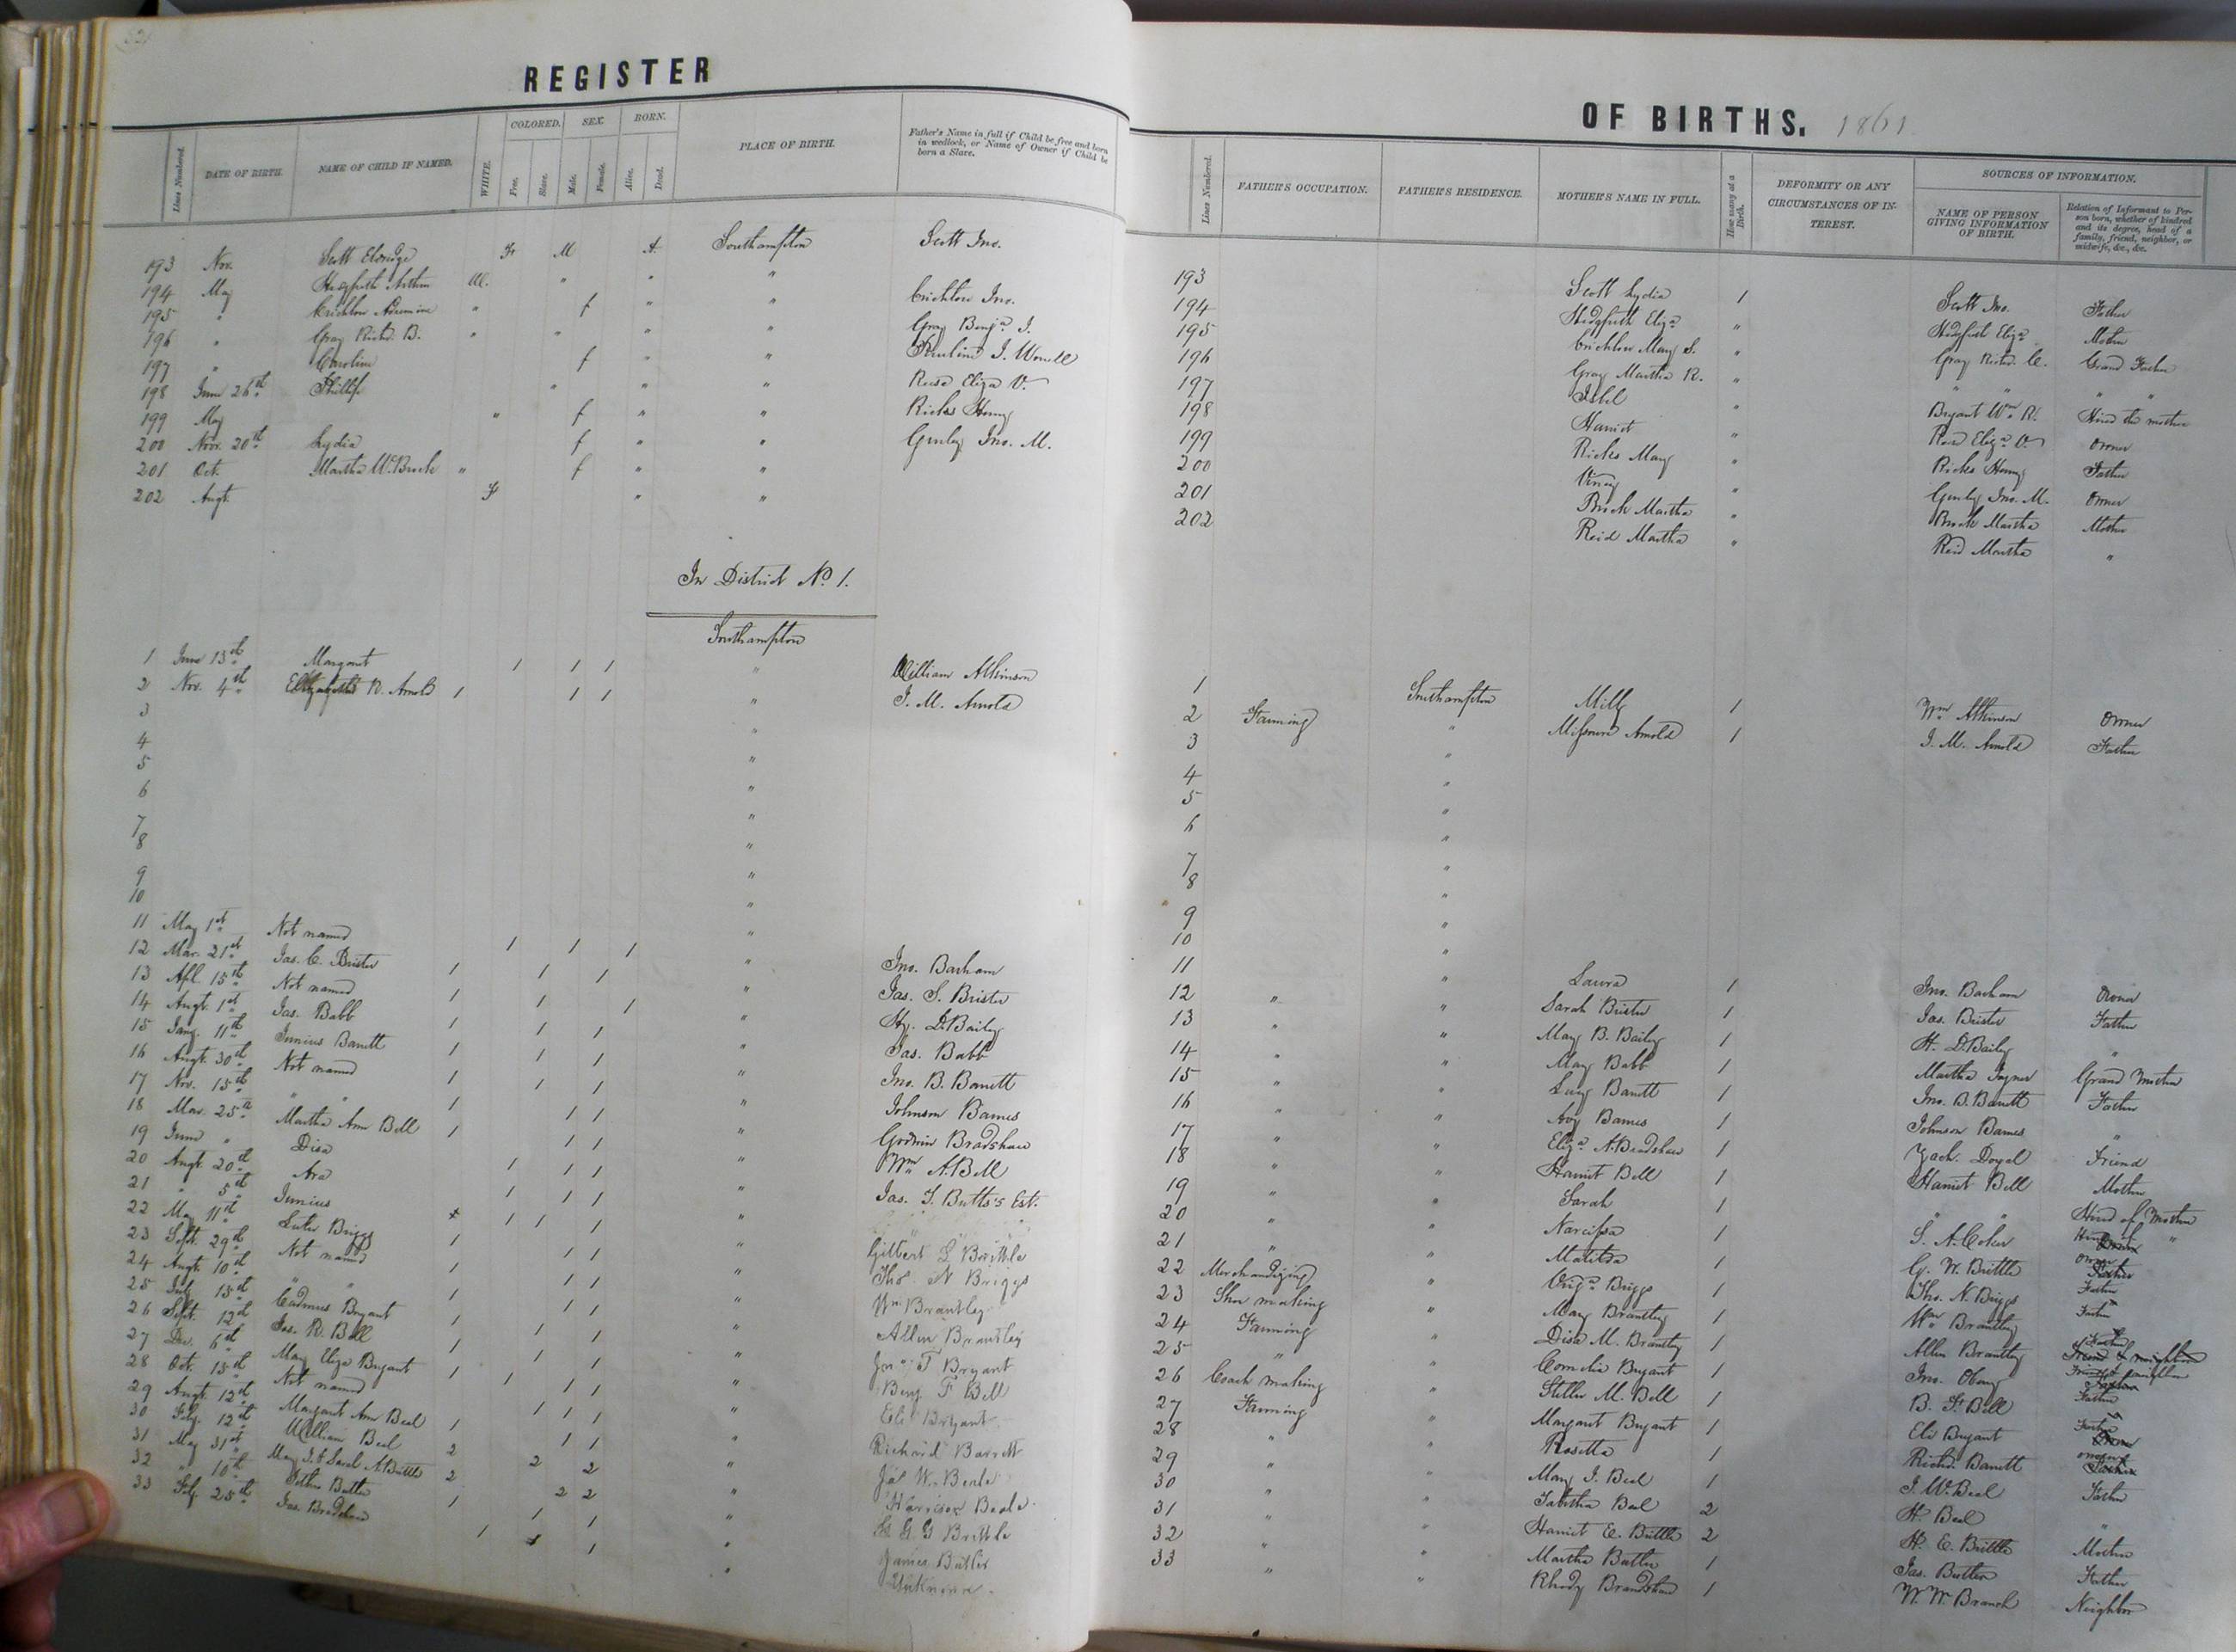 REGISTER
COLORED. SEX. BORN.
Lines Numbered. DATE OF BIRTH. NAME OF CHILD IF NAMED. WHITE. Free. Slave. Male. Female. Alive. Dead. PLACE OF BIRTH. Father's Name in full if Child be free and born in wedlock, or Name of Owner if Child be born a Slave.
193 Nov. Scott Eldridge Fr M A. Southampton Scott Jno.
194 May " " "
195 " f " " Crichlow Jno.
196 " Gray Richd. B. " " " " Gray Benja. J.
197 " Caroline f " "
198 June 26th Phillip " " " Reese Eliza V.
199 May " f " " Ricks Henry
200 Nov. 20th Lydia f " " Gurley Jno. M.
201 Oct. Martha W. Brock " f " "
202 Augt. Fr " "
In District No. 1.
Southampton
1 June 13th Margaret 1 1 1 " William Atkinson
2 Nov. 4th Elizabeth R. Arnold 1 1 1 " J. M. Arnold
3 "
4 "
5 "
6 "
7 "
8 "
9 "
10 "
11 May 1st Not named 1 1 1 " Jno. Barham
12 Mar. 21st Jas. C. Brister 1 1 1 " Jas. S. Brister
13 Apl. 15th Not named 1 1 1 " Hy. D. Bailey
14 Augt. 1st Jas. Babb 1 1 1 " Jas. Babb
15 Jany. 11th Junius Barrett 1 1 1 " Jno. B. Barrett
16 Augt. 30th Not named 1 1 1 " Johnson Barnes
17 Nov. 15th " " 1 1 1 " Godwin Bradshaw
18 Mar. 25th Martha Ann Bell 1 1 1 " Wm. A. Bell
19 June " Disa 1 1 1 " Jas. T. Butts's Est.
20 Augt. 20th Ara 1 1 1 "
21 " 5th Junius 1 1 1 " Gilbert Brittle
22 May 11th Luther Briggs 1 1 1 " Thos N Briggs
23 Sept. 29th Not named 1 1 1 " Wm Brantley
24 Augt. 10th " " 1 1 1 " Allen Brantley
25 July 15th Cadmus Bryant 1 1 1 " Jno. T Bryant
26 Sept. 12th Jas. R. Bell 1 1 1 " Benj F Bell
27 Dec. 6th Mary Eliza Bryant 1 1 1 " Eli Bryant
28 Oct. 15th Not named 1 1 1 " Richard Barrett
29 Augt. 12th Margaret Ann Beal 1 1 1 " Jas W. Beale
30 Feby. 12th William Beal 2 2 2 " Harrison Beale
31 May 31st Mary J. & Sarah A. Brittle 2 2 2 " G Brittle
32 " 10th Butler 1 1 1 " James Butler
33 Feby. 25th Jas. Bradshaw 1 1 1 " Unknown
OF BIRTHS. 1861
SOURCES OF INFORMATION.
Lines Numbered. FATHER'S OCCUPATION. FATHER'S RESIDENCE. MOTHER'S NAME IN FULL. How many at a Birth. DEFORMITY OR ANY CIRCUMSTANCES OF INTEREST. NAME OF PERSON GIVING INFORMATION OF BIRTH. Relation of Informant to Person born, whether of kindred and its degree, head of a family, friend, neighbor, or midwife, &c., &c.
193 Scott Lydia 1 Scott Jno. Father
194 Hedgpeth Eliza " Hedgpeth Eliza Mother
195 Crichlow Mary S. " Gray Richd. C. Grand Father
196 Gray Martha R. " " "
197 " Bryant Wm. R. Hired the mother
198 Harriet " Reese Eliza V. Owner
199 Ricks Mary " Ricks Henry Father
200 Viney " Gurley Jno. M. Owner
201 Brock Martha " Brock Martha Mother
202 Reid Martha " Reid Martha "
1 Southampton Milly 1 Wm Atkinson Owner
2 Farming " Missouri Arnold 1 J. M. Arnold Father
3 "
4 "
5 "
6 "
7 "
8 "
9 "
10 "
11 " Laura 1 Jno. Barham Owner
12 " " Sarah Brister 1 Jas. Brister Father
13 " " Mary B. Bailey 1 H. D. Bailey "
14 " " Mary Babb 1 Martha Joyner Grand Mother
15 " " Lucy Barrett 1 Jno. B. Barrett Father
16 " " Barnes 1 Johnson Barnes "
17 " " Eliza A. Bradshaw 1 Zach. Doyel Friend
18 " " Harriet Bell 1 Harriet Bell Mother
19 " " Sarah 1 " " Hired of Mother
20 " " Narcissa 1 S. A. Coker
21 " " Matilda 1 G. W. Brittle Owner
22 Merchandizing " Virga. Briggs 1 Thos. N. Briggs Father
23 Shoe making " Mary Brantley 1 Wm Brantley Father
24 Farming " Disa M. Brantley 1 Allen Brantley Father
25 " " Cornelia Bryant 1 Jno. Friend & neighbor
26 Coach making " M. Bell 1 B. F. Bell Father
27 Farming " Margaret Bryant 1 Eli Bryant Father
28 " " Rosetta 1 Richd. Barrett Owner
29 " " Mary J. Beal 1 J. W. Beal Father
30 " " Tabitha Beal 2 H. Beal "
31 " " Harriet E. Brittle 2 H. E. Brittle Mother
32 " " Martha Butler 1 Jas. Butler Father
33 " " Rhody Bradshaw 1 W. W. Branch Neighbor